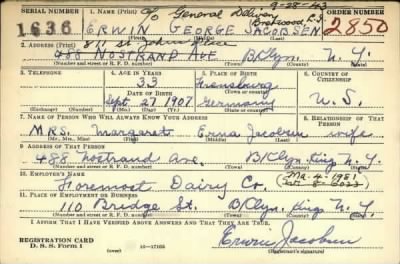 SERIAL NUMBER
1636
1. NAME (Print)
ERWIN GEORGE JACOBSEN
(First) (Middle) (Last)
To General Delivery
Brentwood L.I.
9-28-43
ORDER NUMBER
2850
2. ADDRESS (Print)
811 St. Johns Place
488 NOSTRAND AVE B/Klyn. N.Y.
(Number and street or R. F. D. number) (Town) (County) (State)
3. TELEPHONE
(Exchange) (Number)
4. AGE IN YEARS
33
DATE OF BIRTH
Sept. 27 1907
(Mo.) (Day) (Yr.)
5. PLACE OF BIRTH
Flensburg
(Town or county)
Germany
(State or country)
6. COUNTRY OF CITIZENSHIP
U.S.
7. NAME OF PERSON WHO WILL ALWAYS KNOW YOUR ADDRESS
Mrs. Margaret Erna Jacobsen
(Mr., Mrs., Miss) (First) (Middle) (Last)
8. RELATIONSHIP OF THAT PERSON
wife
9. ADDRESS OF THAT PERSON
488 Nostrand Ave. B/Klyn. King N.Y.
(Number and street or R. F. D. number) (Town) (County) (State)
10. EMPLOYER'S NAME
Foremost Dairy Co.
Ma. 4-1981
11. PLACE OF EMPLOYMENT OR BUSINESS
110 Bridge St. B/Klyn. King N.Y.
(Number and street or R. F. D. number) (Town) (County) (State)
I AFFIRM THAT I HAVE VERIFIED ABOVE ANSWERS AND THAT THEY ARE TRUE.
REGISTRATION CARD
D. S. S. Form 1
(over) 16-17105
Erwin Jacobsen
(Registrant's signature)